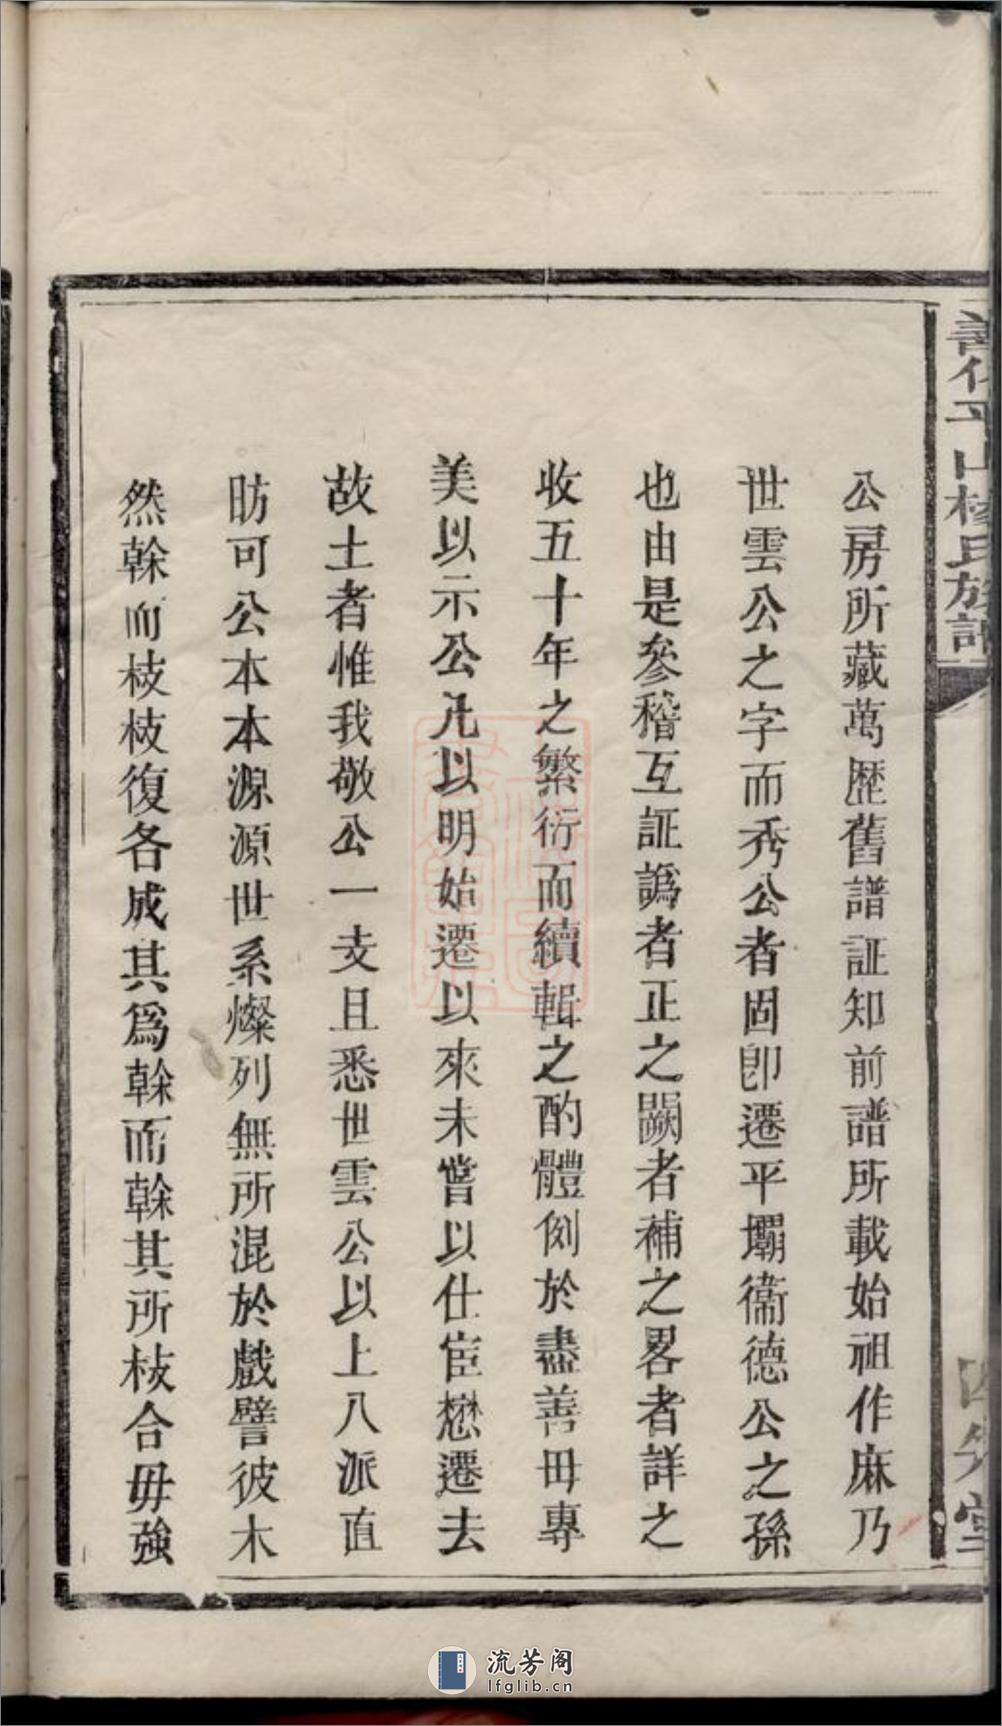 善化平山楊氏族譜
公房所藏萬歷舊譜証知前譜所載始祖作麻乃
世雲公之字而秀公者固卽遷平壩衞德公之孫
也由是參稽互証譌者正之闕者補之畧者詳之
收五十年之繁衍而續輯之酌體例於盡善毋專
美以示公凡以明始遷以來未嘗以仕宦懋遷去
故土者惟我敬公一支且悉世雲公以上八派直
昉可公本本源源世系燦列無所混於戲譬彼木
然榦而枝枝復各成其爲榦而榦其所枝合毋強
流芳阁
lfglib.cn